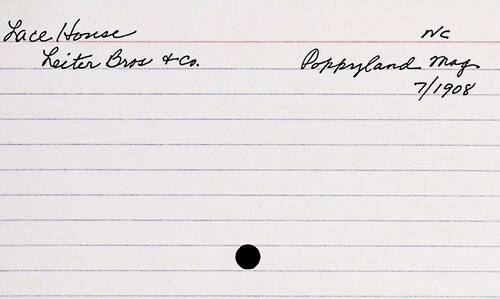 Lace House NC
Leiter Bros & Co. Poppyland Mag
7/1908